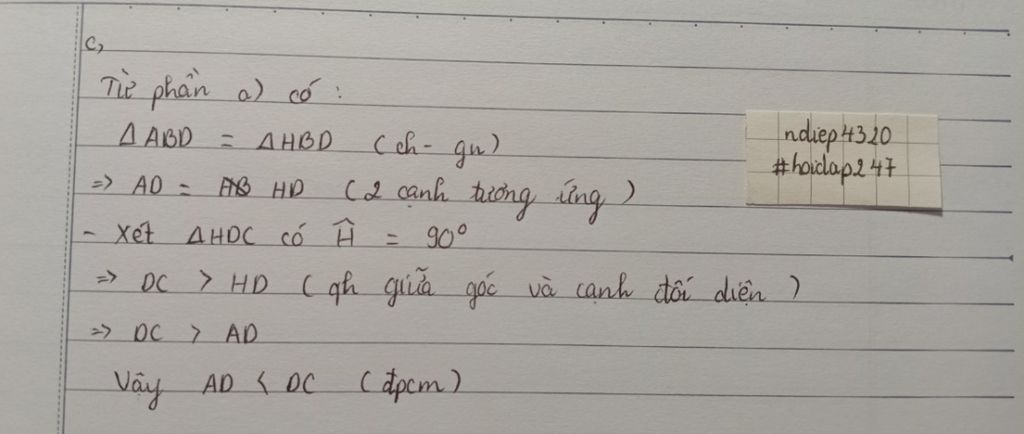 c,
Từ phần a) có :
Δ ABD = ΔHBD (ch - gn)
=> AD = HD (2 cạnh tương ứng)
- Xét ΔHDC có Ĥ = 90°
=> DC > HD (qh giữa góc và cạnh đối diện)
=> DC > AD
Vậy AD < DC (đpcm)
ndiep4320
#hoidap247